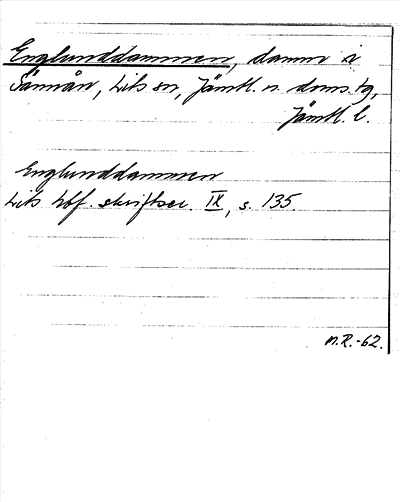 Englunddammen, damm i
Sännån, Lits sn, Jämtl. n. doms.tg,
Jämtl. l.
Englunddammen
Lits hbf. skriftser. IX, s. 135.
M.R.-62.